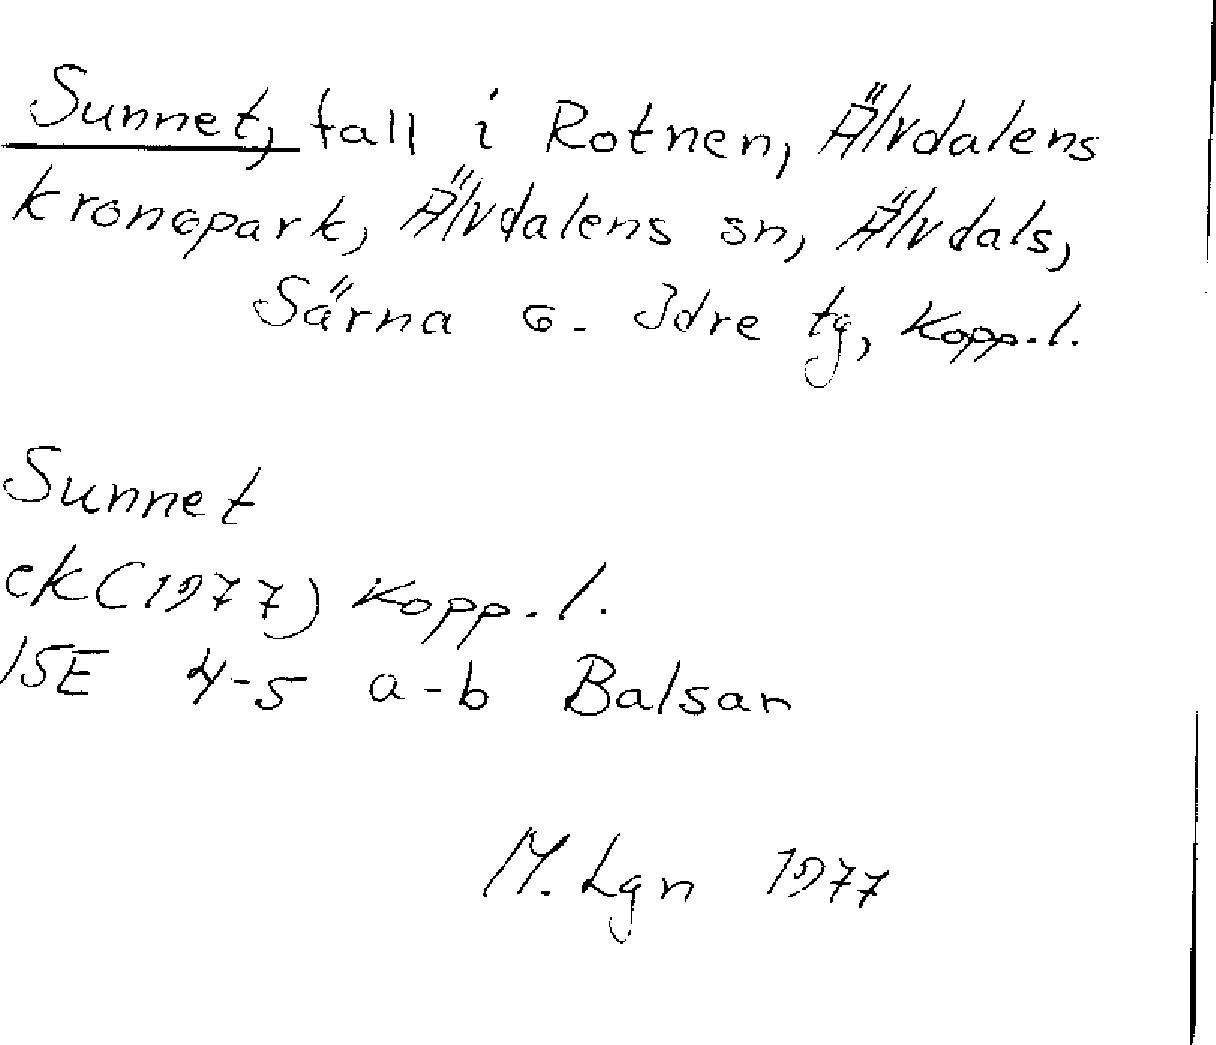 Sunnet, fall i Rotnen, Älvdalens
kronopark, Älvdalens sn, Älvdals,
Särna o. Idre tg, Kopp.l.
Sunnet
ek(1977) Kopp.l.
15E 4-5 a-b Balsan
M. Lgn 1977